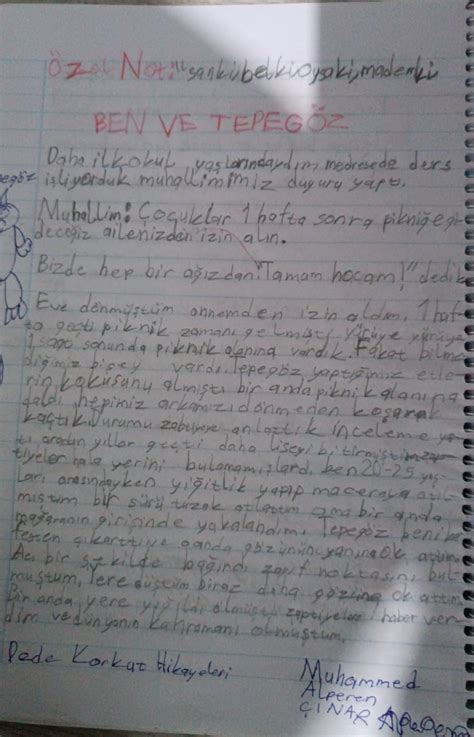 Özel Not: sanki, belki, oysaki, mademki
BEN VE TEPEGÖZ
Daha ilkokul yaşlarındaydım, medresede ders
işliyorduk muhallimimiz duyuru yaptı.
Muhallim: Çocuklar 1 hafta sonra pikniğe gi
deceğiz ailenizden izin alın.
Bizde hep bir ağızdan "Tamam hocam!" dedik
Eve dönmüştüm annemden izin aldım, 1 haf
ta geçti piknik zamanı gelmişti yürüye yürüye
1 saat sonunda piknik alanına vardık. Fakat bilme
diğimiz bişey vardı. Tepegöz yaptığımız etle
rin kokusunu almıştı bir anda piknik alanına
daldı hepimiz arkamızı dönmeden koşarak
kaçtık. Durumu zabtiyeye anlattık inceleme ya
tı, aradan yıllar geçti daha liseyi bitirmiştim zap
tiyeler hala yerini bulamamışlardı, ben 20-25 yaş
ları arasındayken yiğitlik yapıp maceraya atıl
mıştım bir sürü tuzak atlattım ama bir anda
mağaranın girişinde yakalandım, Tepegöz beni ka
festen çıkarttı o anda gözünün yanına ok attım
Acı bir şekilde bağırdı zayıf noktasını bul
muştum, Yere düştüm biraz daha gözüne ok attım
Bir anda yere yığıldı ölmüştü zaptiyelere haber ver
dim ve dünyanın kahramanı olmuştum.
Dede Korkut Hikayeleri
Muhammed
Alperen
ÇINAR